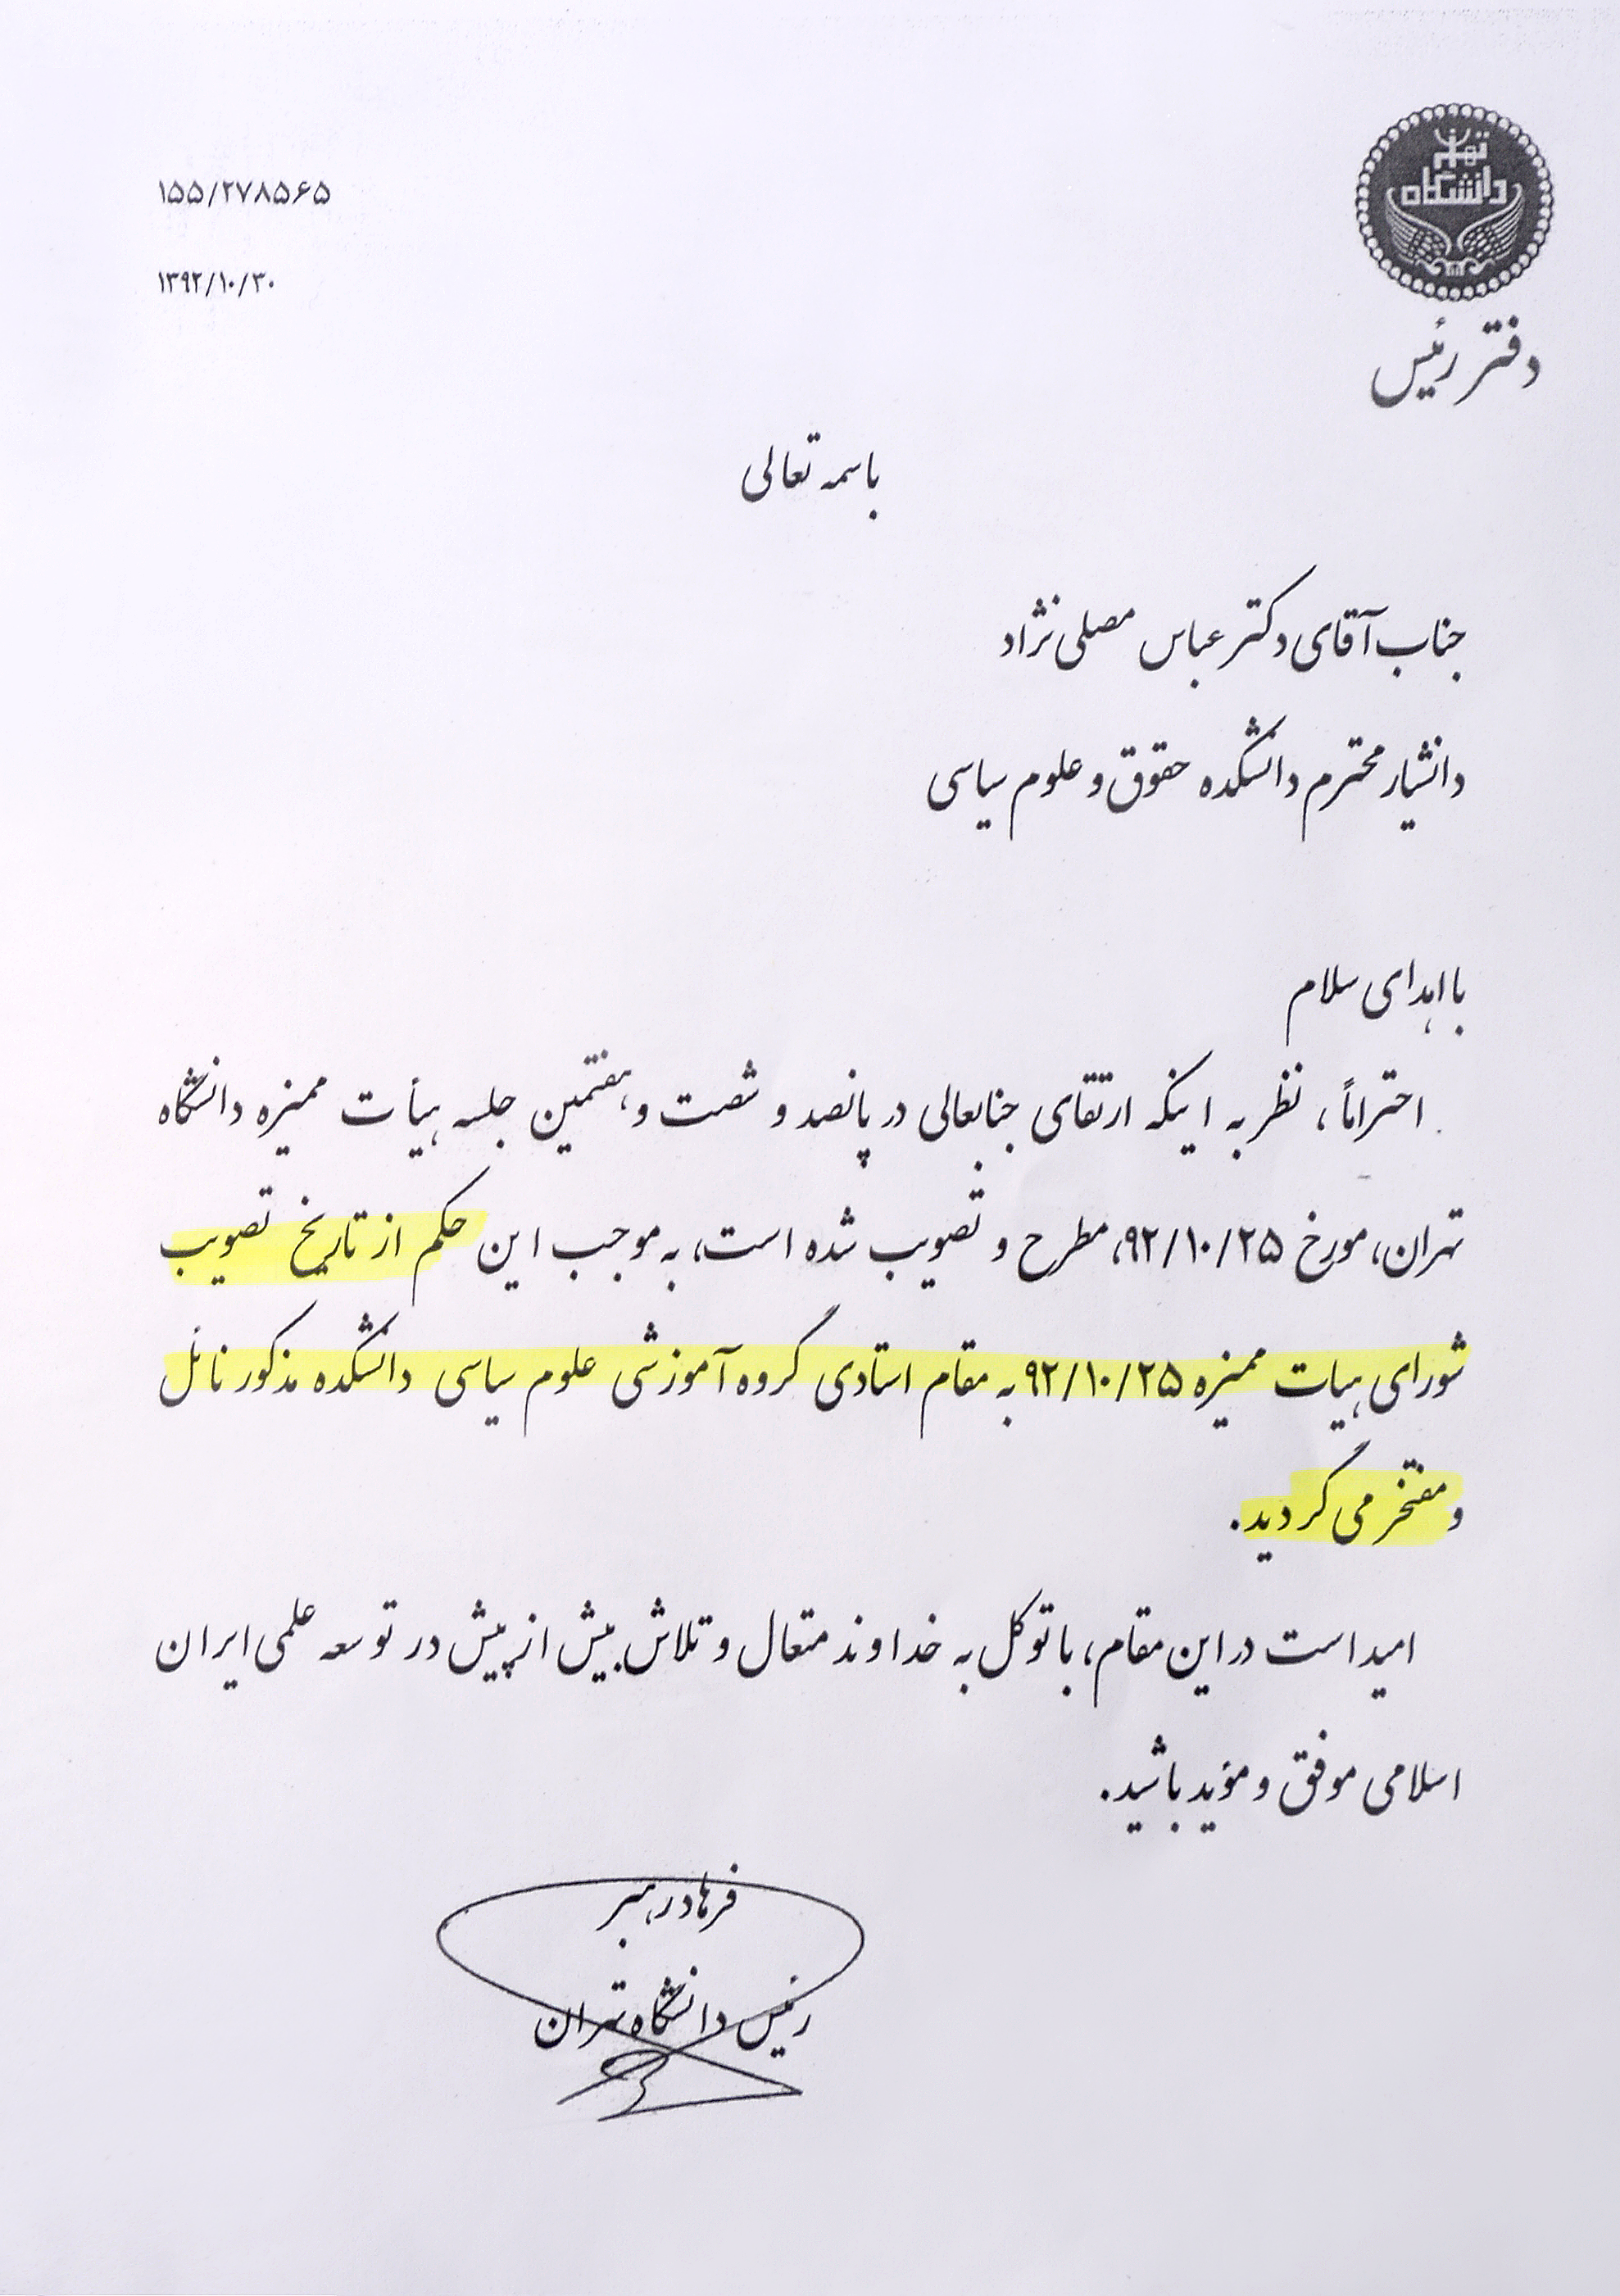 ۱۵۵/۲۷۸۵۶۵
۱۳۹۲/۱۰/۳۰
دانشگاه تهران
دفتر رئیس
باسمه تعالی
جناب آقای دکتر عباس مصلی نژاد
دانشیار محترم دانشکده حقوق و علوم سیاسی
با اهدای سلام
احتراماً، نظر به اینکه ارتقای جنابعالی در پانصد و شصت و هفتمین جلسه هیأت ممیزه دانشگاه
تهران، مورخ ۹۲/۱۰/۲۵، مطرح و تصویب شده است، به موجب این حکم از تاریخ تصویب
شورای هیات ممیزه ۹۲/۱۰/۲۵ به مقام استادی گروه آموزشی علوم سیاسی دانشکده مذکور نائل
و مفتخر می گردید.
امید است در این مقام، با توکل به خداوند متعال و تلاش بیش از پیش در توسعه علمی ایران
اسلامی موفق و مؤید باشید.
فرهاد رهبر
رئیس دانشگاه تهران